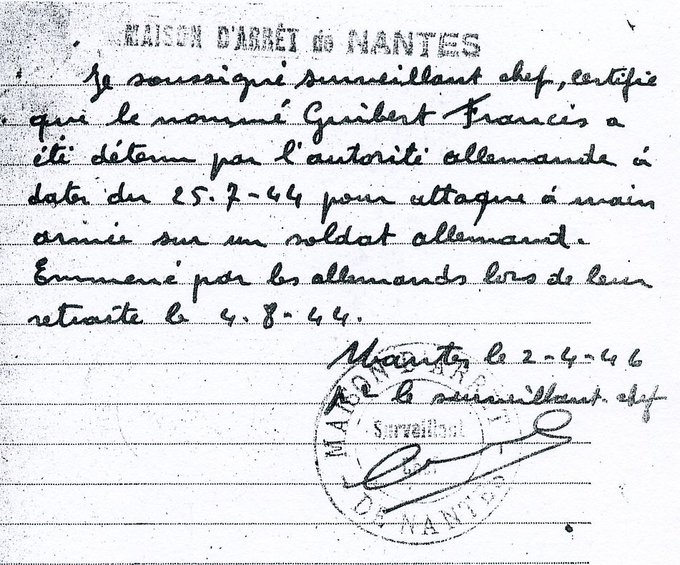 MAISON D'ARRÊT de NANTES
Je soussigné surveillant chef, certifie
que le nommé Guibert Francis a
été détenu par l'autorité allemande à
dater du 25-7-44 pour attaque à main
armée sur un soldat allemand.
Emmené par les allemands lors de leur
retraite le 4-8-44.
Nantes le 2-4-46
le surveillant-chef
MAISON D'ARRÊT
Surveillant
Chef
DE NANTES